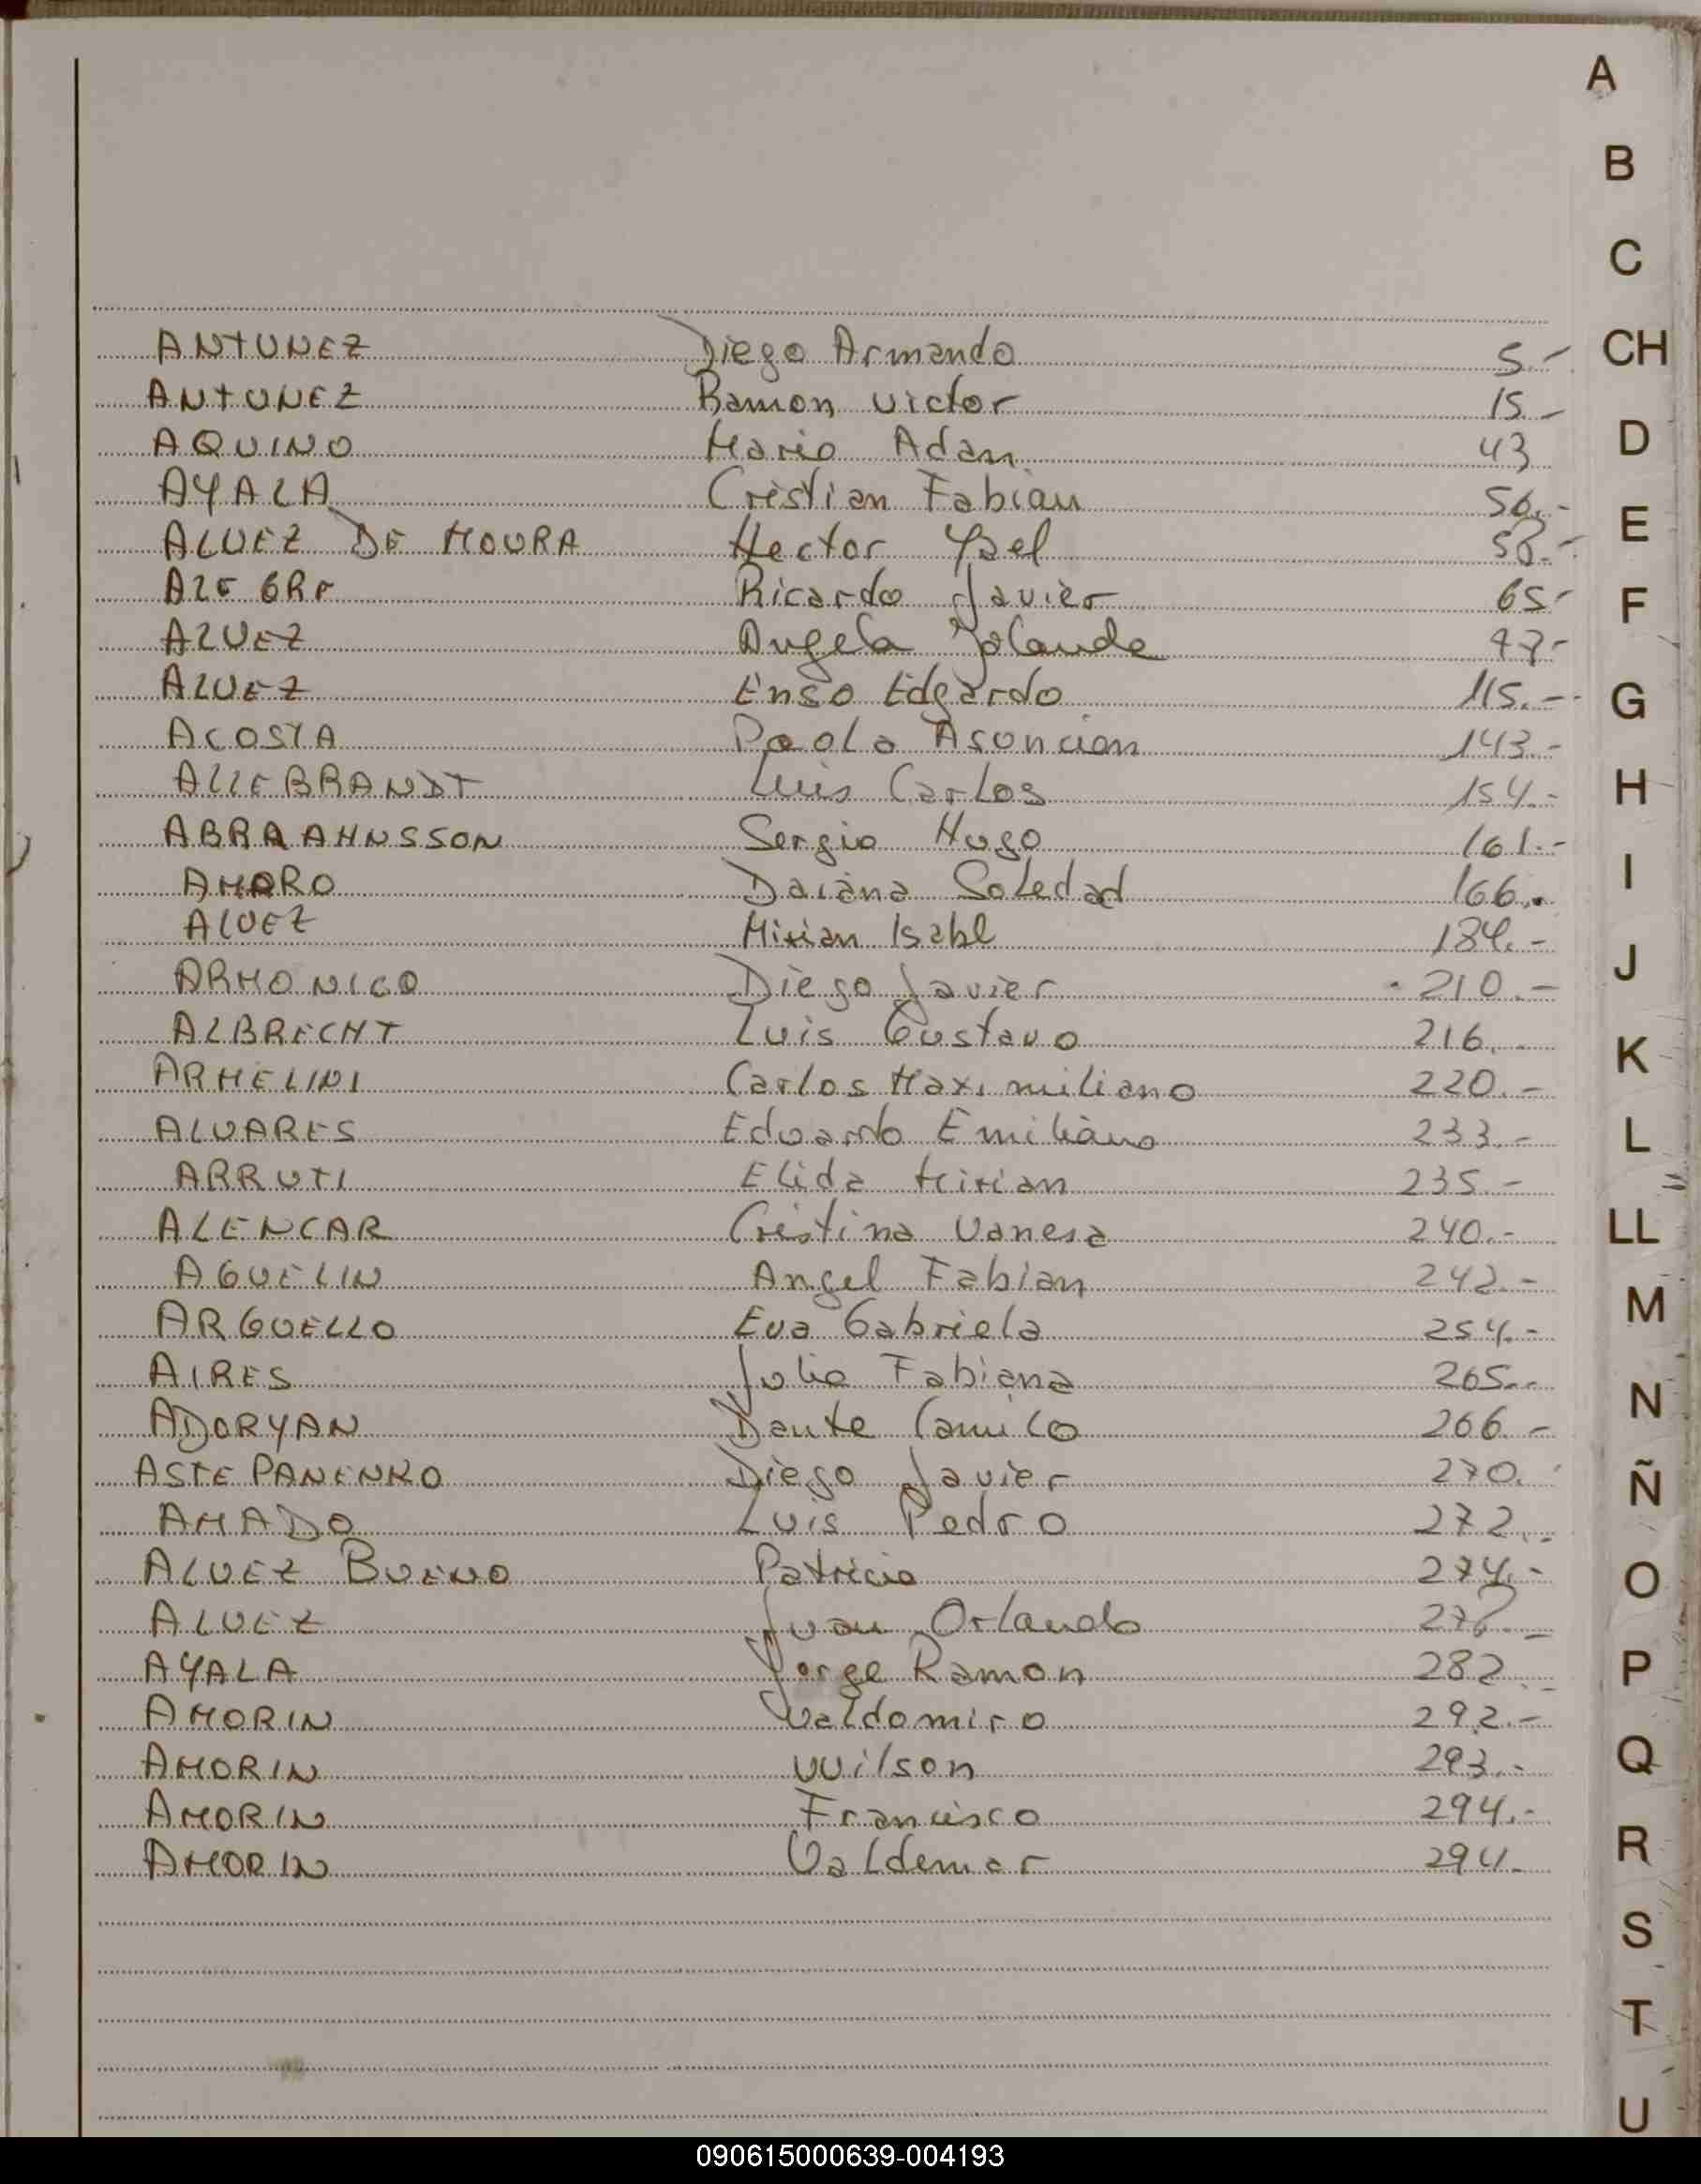 A
B
C
CH
D
E
F
G
H
I
J
K
L
LL
M
N
Ñ
O
P
Q
R
S
T
U
ANTUNEZ Diego Armando 5.-
ANTUNEZ Ramon Victor 15.-
AQUINO Mario Adan 43
AYALA Cristian Fabian 56.-
ALVEZ DE MOURA Hector 58.-
ALEGRE Ricardo Javier 65-
ALVEZ Angela Yolanda 97-
ALVEZ Enso Edgardo 115.-
ACOSTA Paola Asuncion 143.-
ALLEBRANDT Luis Carlos 154.-
ABRAAHNSSON Sergio Hugo 161.-
AMARO Daiana Soledad 166.
ALVEZ Mirian Isabl 184.-
ARMONICO Diego Javier 210.-
ALBRECHT Luis Gustavo 216.-
ARMELINI Carlos Maximiliano 220.-
ALVARES Eduardo Emiliano 233.-
ARRUTI Elida Mirian 235.-
ALENCAR Cristina Vanesa 240.-
AGUELIN Angel Fabian 242.-
ARGUELLO Eva Gabriela 254.-
AIRES Julia Fabiana 265.-
ADORYAN Dante Camilo 266.-
ASTEPANENKO Diego Javier 270.
AMADO Luis Pedro 272.-
ALVEZ BUENO Patricia 274.-
ALVEZ Juan Orlando
AYALA Jorge Ramon 282.-
AMORIN Valdomiro 292.-
AMORIN Wilson 293.-
AMORIN Francisco 294.-
AMORIN Valdemar 294.
090615000639-004193